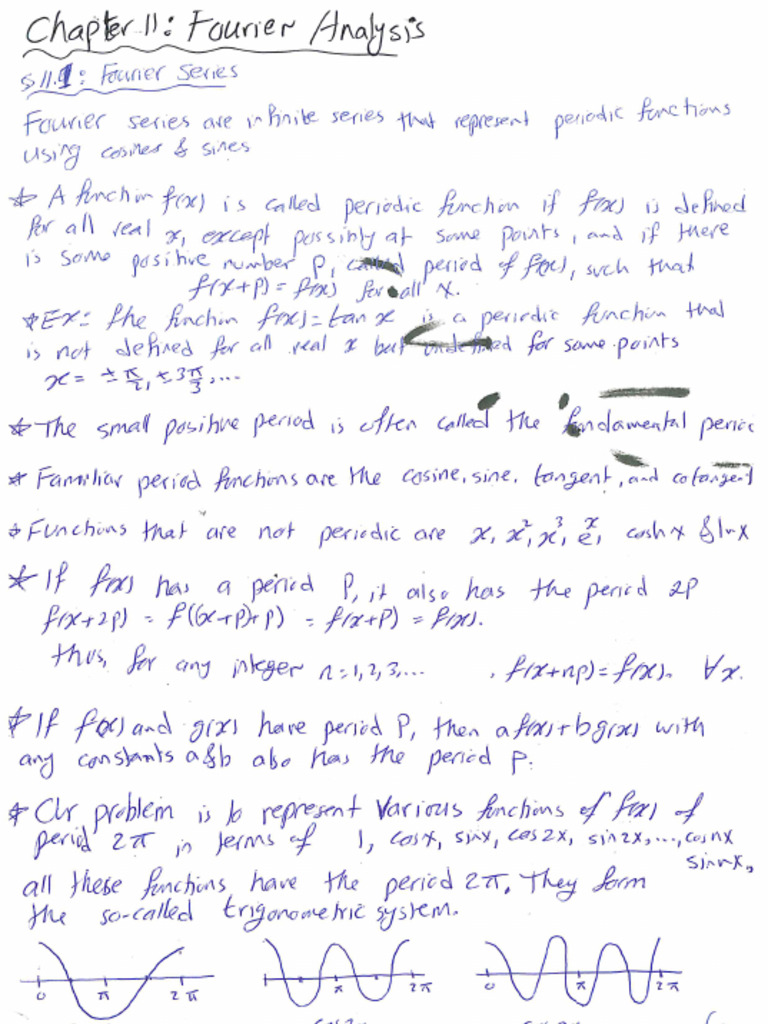 Chapter 11: Fourier Analysis
§11.1: Fourier Series
Fourier series are infinite series that represent periodic functions
using cosines & sines
* A function f(x) is called periodic function if f(x) is defined
for all real x, except possibly at some points, and if there
is some positive number P, called period of f(x), such that
f(x+P) = f(x) for all x.
* Ex: the function f(x) = tan x is a periodic function that
is not defined for all real x but undefined for some points
x = ± π/2, ± 3π/3, ...
* The small positive period is often called the fundamental perio
* Familiar period functions are the cosine, sine, tangent, and cotangent
* Functions that are not periodic are x, x², x³, eˣ, cosh x & ln x
* If f(x) has a period P, it also has the period 2P
f(x+2P) = f((x+P)+P) = f(x+P) = f(x).
thus, for any integer n = 1, 2, 3, ... , f(x+np) = f(x). ∀x.
* If f(x) and g(x) have period P, then a f(x) + b g(x) with
any constants a & b also has the period P.
* Our problem is to represent various functions of f(x) of
period 2π in terms of 1, cos x, sin x, cos 2x, sin 2x, ..., cos nx
sin nx,
all these functions have the period 2π. They form
the so-called trigonometric system.
0 π 2π π 2π 0 π 2π
cos 2x